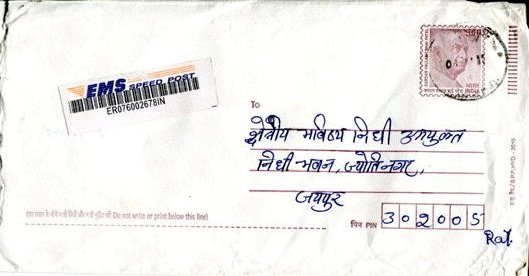 EMS SPEED POST
ER076002678IN
To
क्षेत्रीय भविष्य निधी उपायुक्त
निधी भवन, ज्योतिनगर,
जयपुर
(इस लाइन के नीचे न तो लिखें और न ही मुद्रित करें Do not write or print below this line)
पिन PIN 302005
Raj.